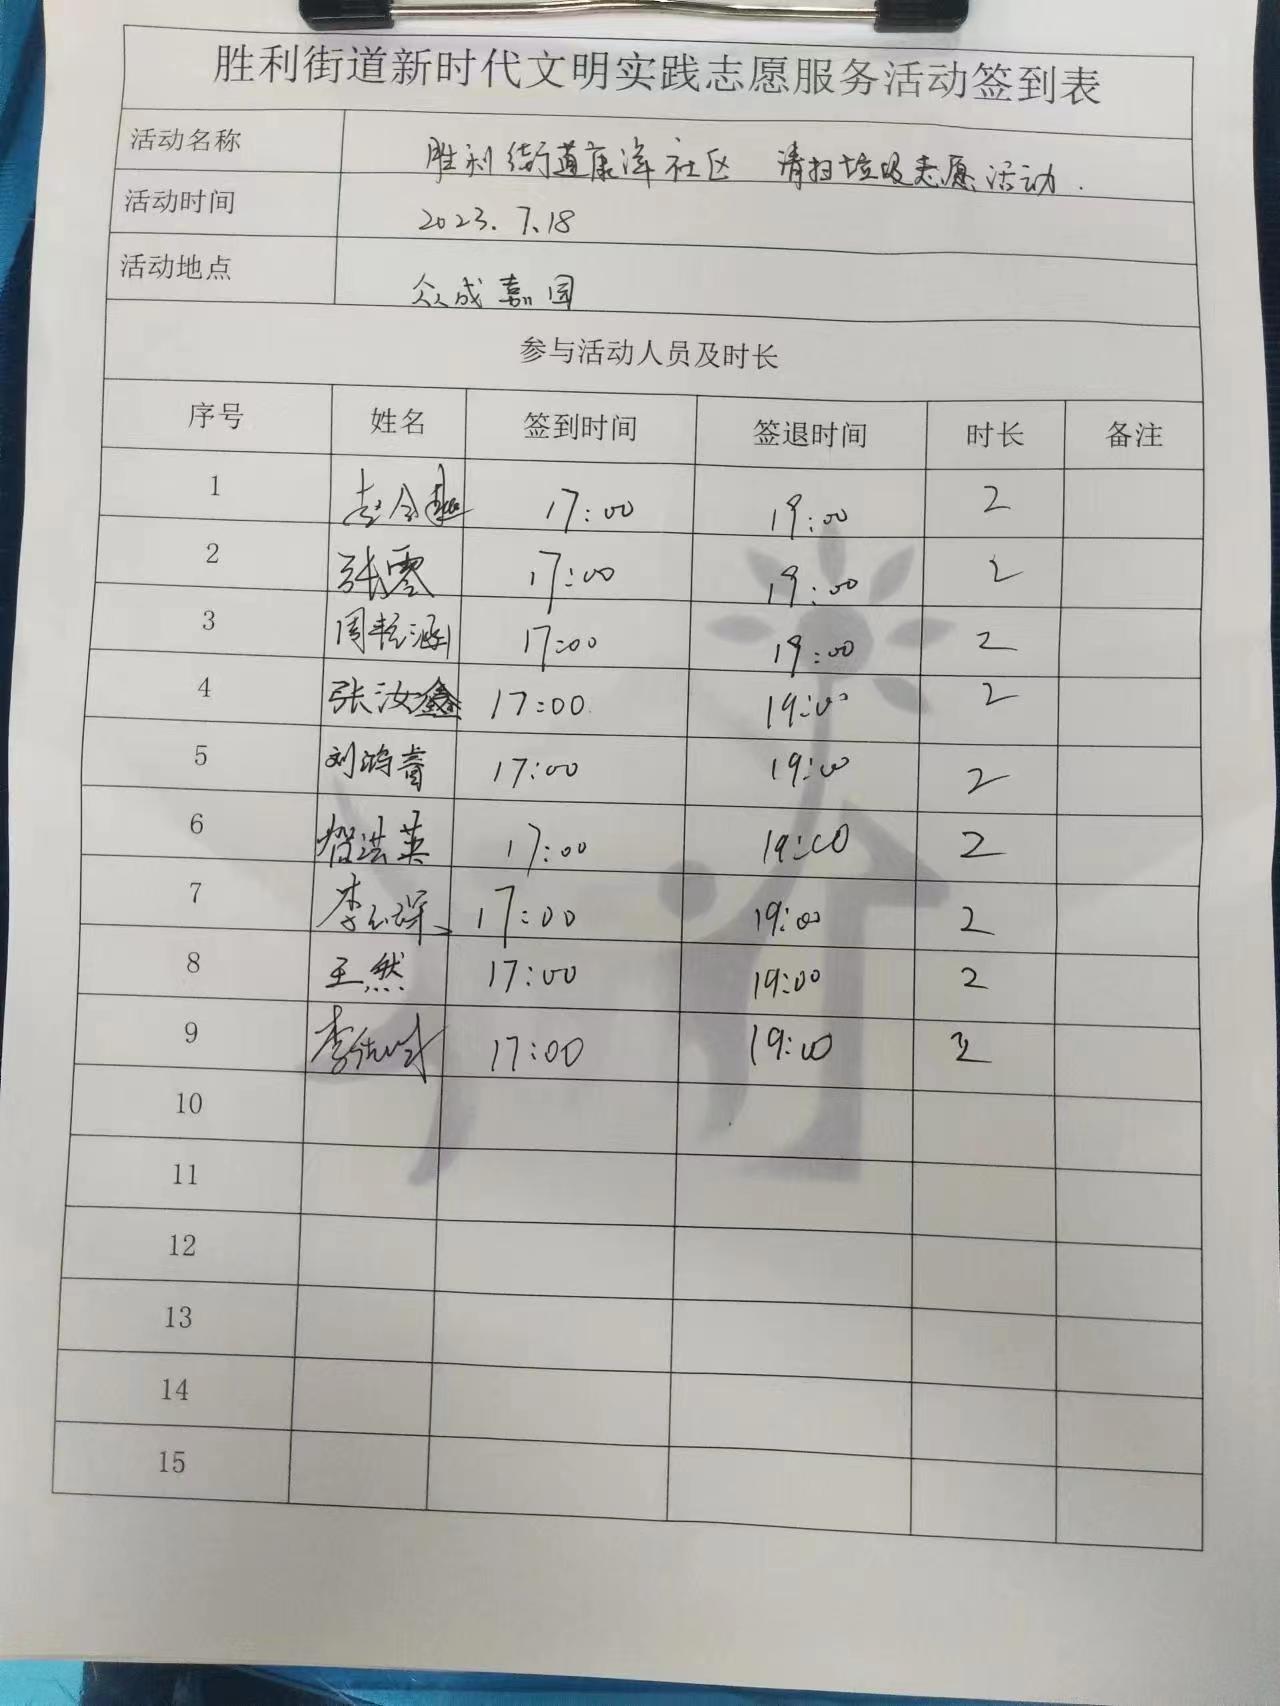 胜利街道新时代文明实践志愿服务活动签到表
活动名称 胜利街道康洋社区 清扫垃圾志愿活动.
活动时间 2023.7.18
活动地点 众成嘉园
参与活动人员及时长
序号 姓名 签到时间 签退时间 时长 备注
1 17:00 19:00 2
2 张雯 17:00 19:00 2
3 周 涵 17:00 19:00 2
4 张汝鑫 17:00 19:00 2
5 刘鸿睿 17:00 19:00 2
6 洪英 17:00 19:00 2
7 李 琛 17:00 19:00 2
8 王然 17:00 19:00 2
9 李 17:00 19:00 2
10
11
12
13
14
15